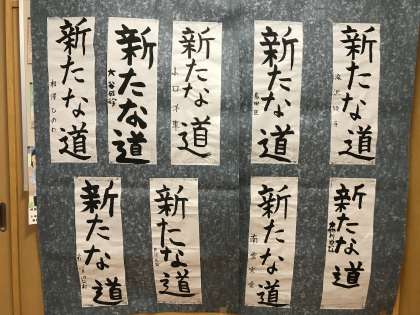 新たな道
新たな道
新たな道
新たな道
新たな道
新たな道
新たな道
新たな道
新たな道